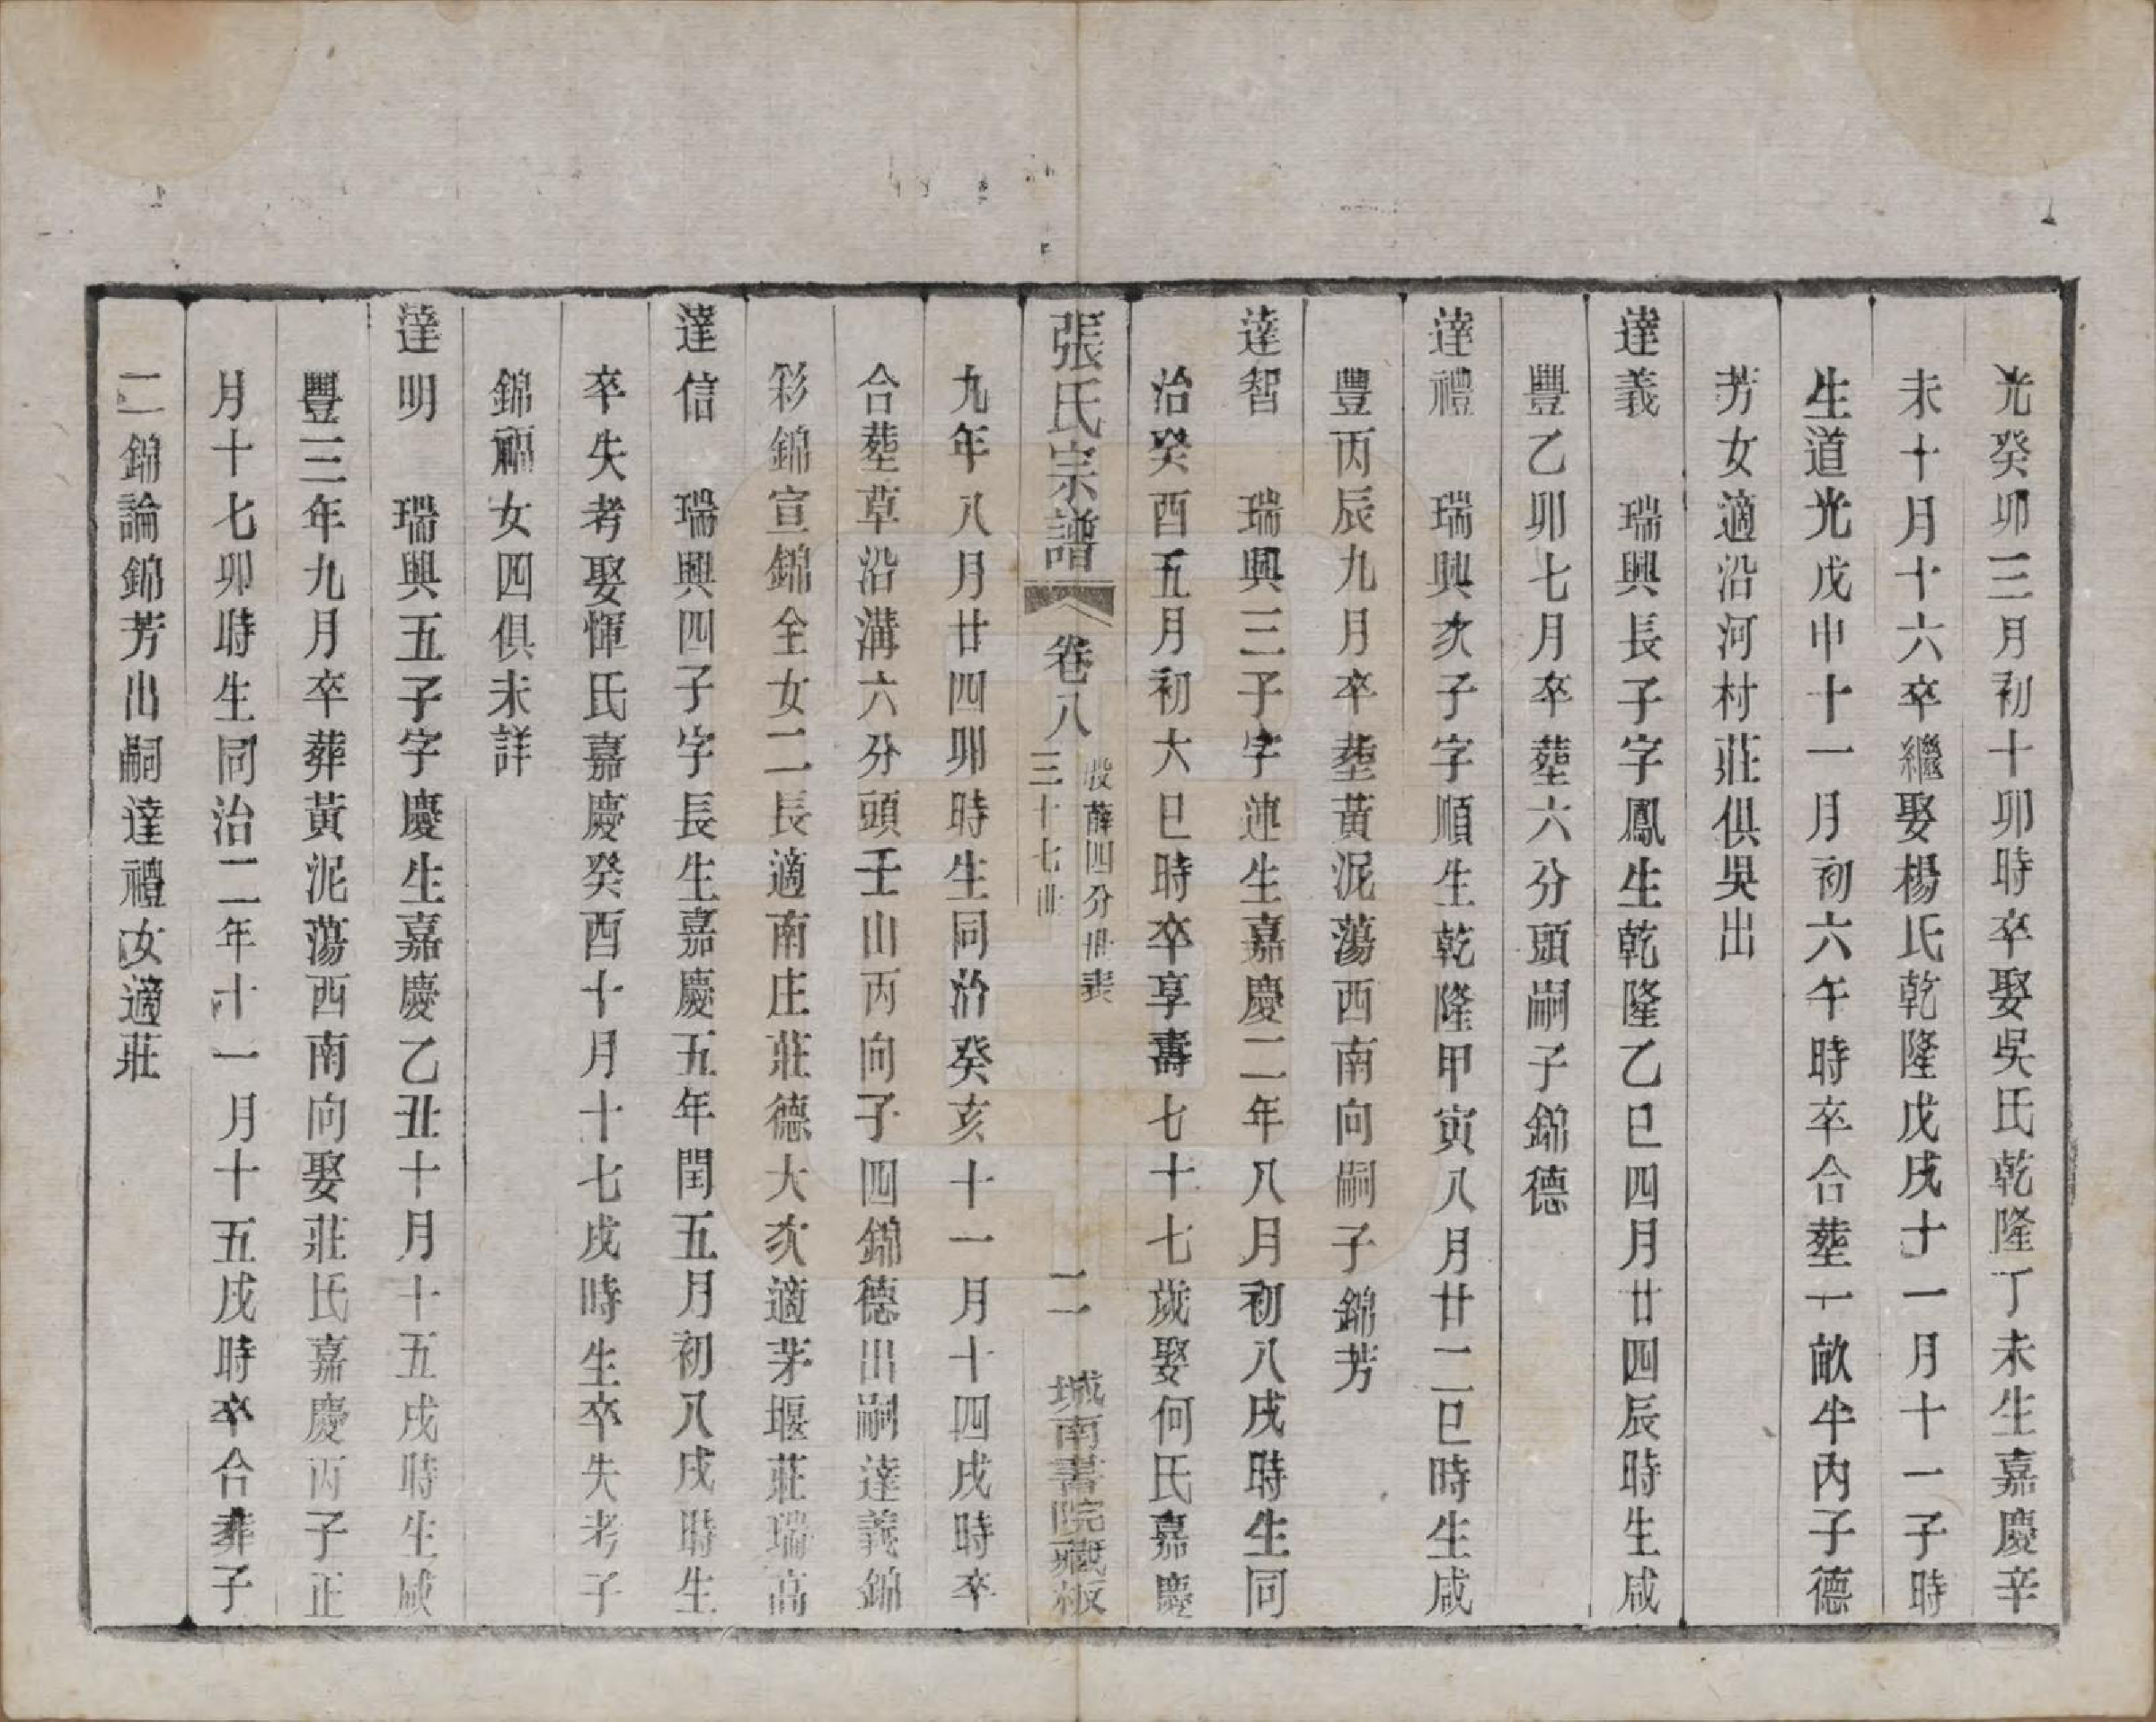 光癸卯三月初十卯時卒娶吳氏乾隆丁未生嘉慶辛
未十月十六卒繼娶楊氏乾隆戊戌十一月十一子時
生道光戊申十一月初六午時卒合塟一畝半內子德
芳女適沿河村莊俱吳出
達義　瑞興長子字鳳生乾隆乙巳四月廿四辰時生咸
豐乙卯七月卒塟六分頭嗣子錦德
達禮　瑞興次子字順生乾隆甲寅八月廿二巳時生咸
豐丙辰九月卒塟黃泥蕩西南向嗣子錦芳
達智　瑞興三子字連生嘉慶二年八月初八戌時生同
治癸酉五月初六巳時卒享壽七十七歲娶何氏嘉慶
張氏宗譜　卷八　股薛四分世表　三十七世　二　城南書院藏板
九年八月廿四卯時生同治癸亥十一月十四戌時卒
合塟草沿溝六分頭壬山丙向子四錦德出嗣達義錦
彩錦宣錦全女二長適南庄莊德大次適茅堰莊瑞高
達信　瑞興四子字長生嘉慶五年閏五月初八戌時生
卒失考娶惲氏嘉慶癸酉十月十七戌時生卒失考子
錦福女四俱未詳
達明　瑞興五子字慶生嘉慶乙丑十月十五戌時生咸
豐三年九月卒葬黃泥蕩西南向娶莊氏嘉慶丙子正
月十七卯時生同治二年十一月十五戌時卒合葬子
二錦論錦芳出嗣達禮女適莊